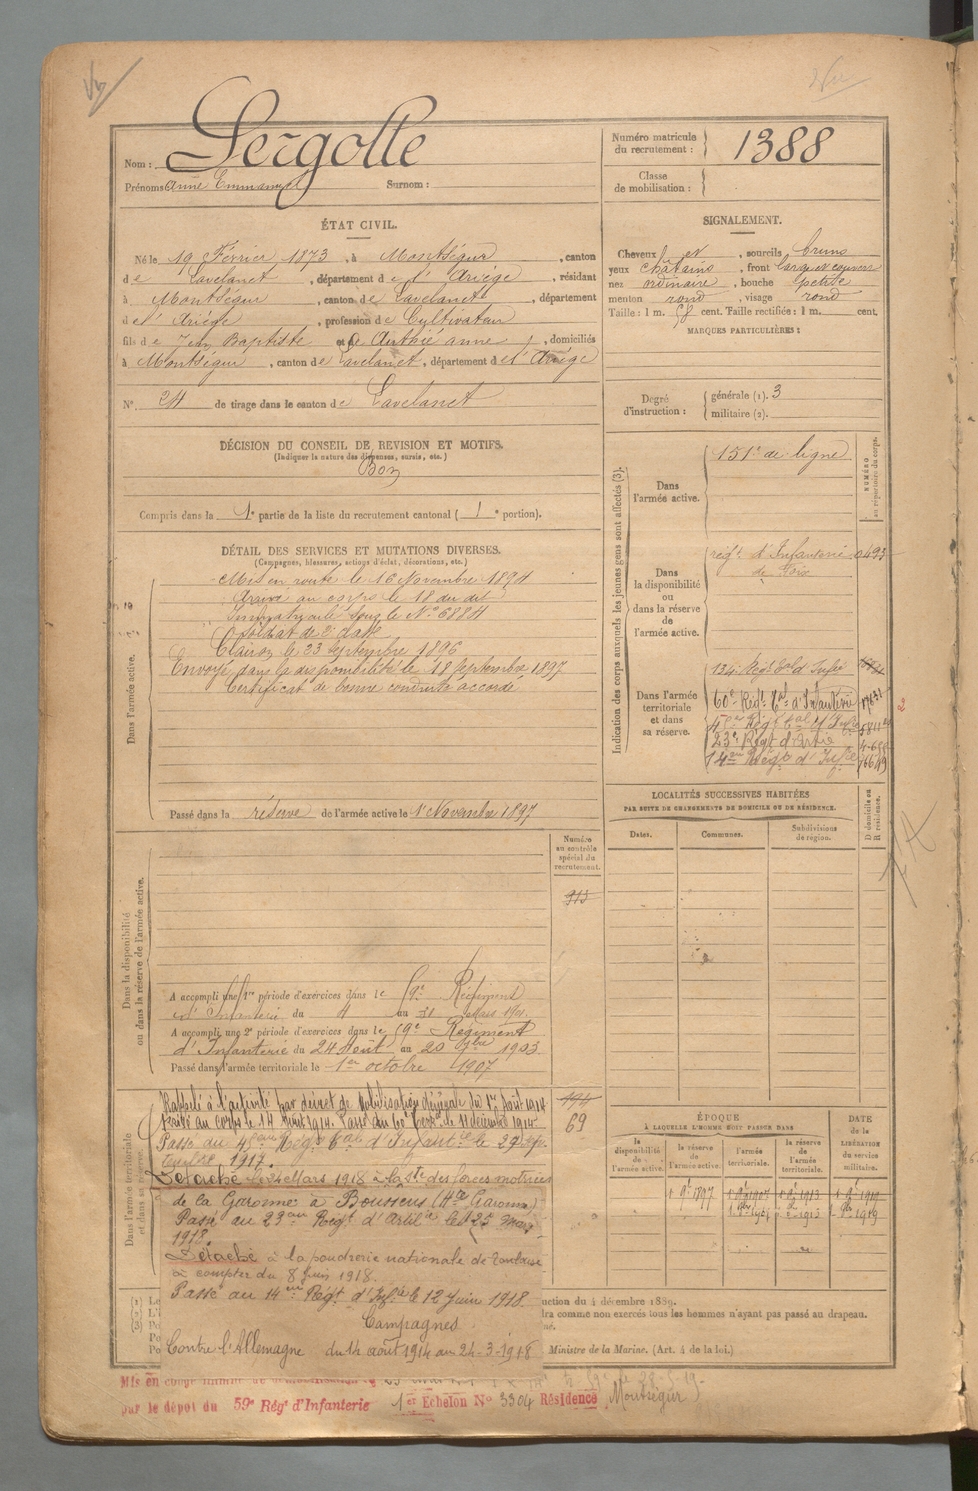 Nom : Lergotte
Prénoms Anne Emmanuel Surnom :
Numéro matricule du recrutement : 1388
Classe de mobilisation :
ÉTAT CIVIL.
Né le 19 Février 1873, à Montségur, canton
de Lavelanet, département de l'Ariège, résidant
à Montségur, canton de Lavelanet, département
de l'Ariège, profession de Cultivateur
fils de Jean Baptiste et de Authié anne, domiciliés
à Montségur, canton de Lavelanet, département de l'Ariège
N° 24 de tirage dans le canton de Lavelanet
SIGNALEMENT.
Cheveux et, sourcils bruns
yeux châtains, front large et couvert
nez ordinaire, bouche petite
menton rond, visage rond
Taille : 1 m. 58 cent. Taille rectifiée : 1 m. cent.
MARQUES PARTICULIÈRES :
Degré d'instruction : générale (1). 3
militaire (2).
DÉCISION DU CONSEIL DE REVISION ET MOTIFS.
(Indiquer la nature des dispenses, sursis, etc.)
Bon
Compris dans la 1e partie de la liste du recrutement cantonal ( 1e portion).
DÉTAIL DES SERVICES ET MUTATIONS DIVERSES.
(Campagnes, blessures, actions d'éclat, décorations, etc.)
Dans l'armée active.
Mis en route le 16 Novembre 1894
Arrivé au corps le 18 du dit
Immatriculé sous le N° 6884
Soldat de 2e classe
Clairon le 23 septembre 1896
Envoyé dans la disponibilité le 18 Septembre 1897
Certificat de bonne conduite accordé
Passé dans la réserve de l'armée active le 1er Novembre 1897
Indication des corps auxquels les jeunes gens sont affectés (3).
NUMÉRO au répertoire du corps.
Dans l'armée active.
151e de ligne
Dans la disponibilité ou dans la réserve de l'armée active.
régt d'Infanterie 0493
de Foix
Dans l'armée territoriale et dans sa réserve.
134e Régt Tal d'Infie
60e Régt Tal d'Infanterie
4e Régt tal d'Infie
23e Régt d'Artie
14eme Régt d'Infie
2
LOCALITÉS SUCCESSIVES HABITÉES
PAR SUITE DE CHANGEMENTS DE DOMICILE OU DE RÉSIDENCE.
Dates. Communes. Subdivisions de région.
D domicile ou R résidence.
Dans la disponibilité ou dans la réserve de l'armée active.
Numéro au contrôle spécial du recrutement.
313
A accompli une 1re période d'exercices dans le 59e Régiment
d'Infanterie du 4 au 31 Mars 1901
A accompli une 2e période d'exercices dans le 59e Régiment
d'Infanterie du 24 Août au 20 7bre 1903
Passé dans l'armée territoriale le 1er octobre 1907
Dans l'armée territoriale et dans sa réserve.
194
69
Rappelé à l'activité par décret de Mobilisation Générale du 1er Août 1914
Arrivé au corps le 14 Août 1914. Passé au 60e Terr. le 11 décembre 1914
Passé au 4eme Régt tal d'Infantie le 29 sep-
tembre 1917.
Détaché le 24 Mars 1918 à la Sté des forces motrices
de la Garonne à Boussens (Hte Garonne)
Passé au 23eme Régt d'Artie le 25 Mars
1918.
Détaché à la poudrerie nationale de Toulouse
à compter du 8 Juin 1918.
Passé au 14eme Régt d'Infie le 12 Juin 1918
Campagnes
Contre l'Allemagne du 14 août 1914 au 24-3-1918
ÉPOQUE
À LAQUELLE L'HOMME DOIT PASSER DANS
la disponibilité de l'armée active.
la réserve de l'armée active.
l'armée territoriale.
la réserve de l'armée territoriale.
DATE de la LIBÉRATION du service militaire.
1er 9bre 1897
uction du 4 décembre 1889.
dra comme non exercés tous les hommes n'ayant pas passé au drapeau.
Ministre de la Marine. (Art. 4 de la loi.)
Mis en congé illimité de démobilisation
par le dépôt du 59e Régt d'Infanterie 1er Echelon N° 3304 Résidence Montségur